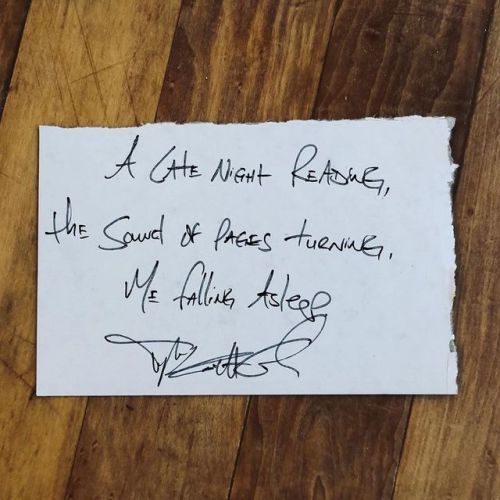 A Late Night Reading,
the Sound of Pages turning,
Me falling Asleep